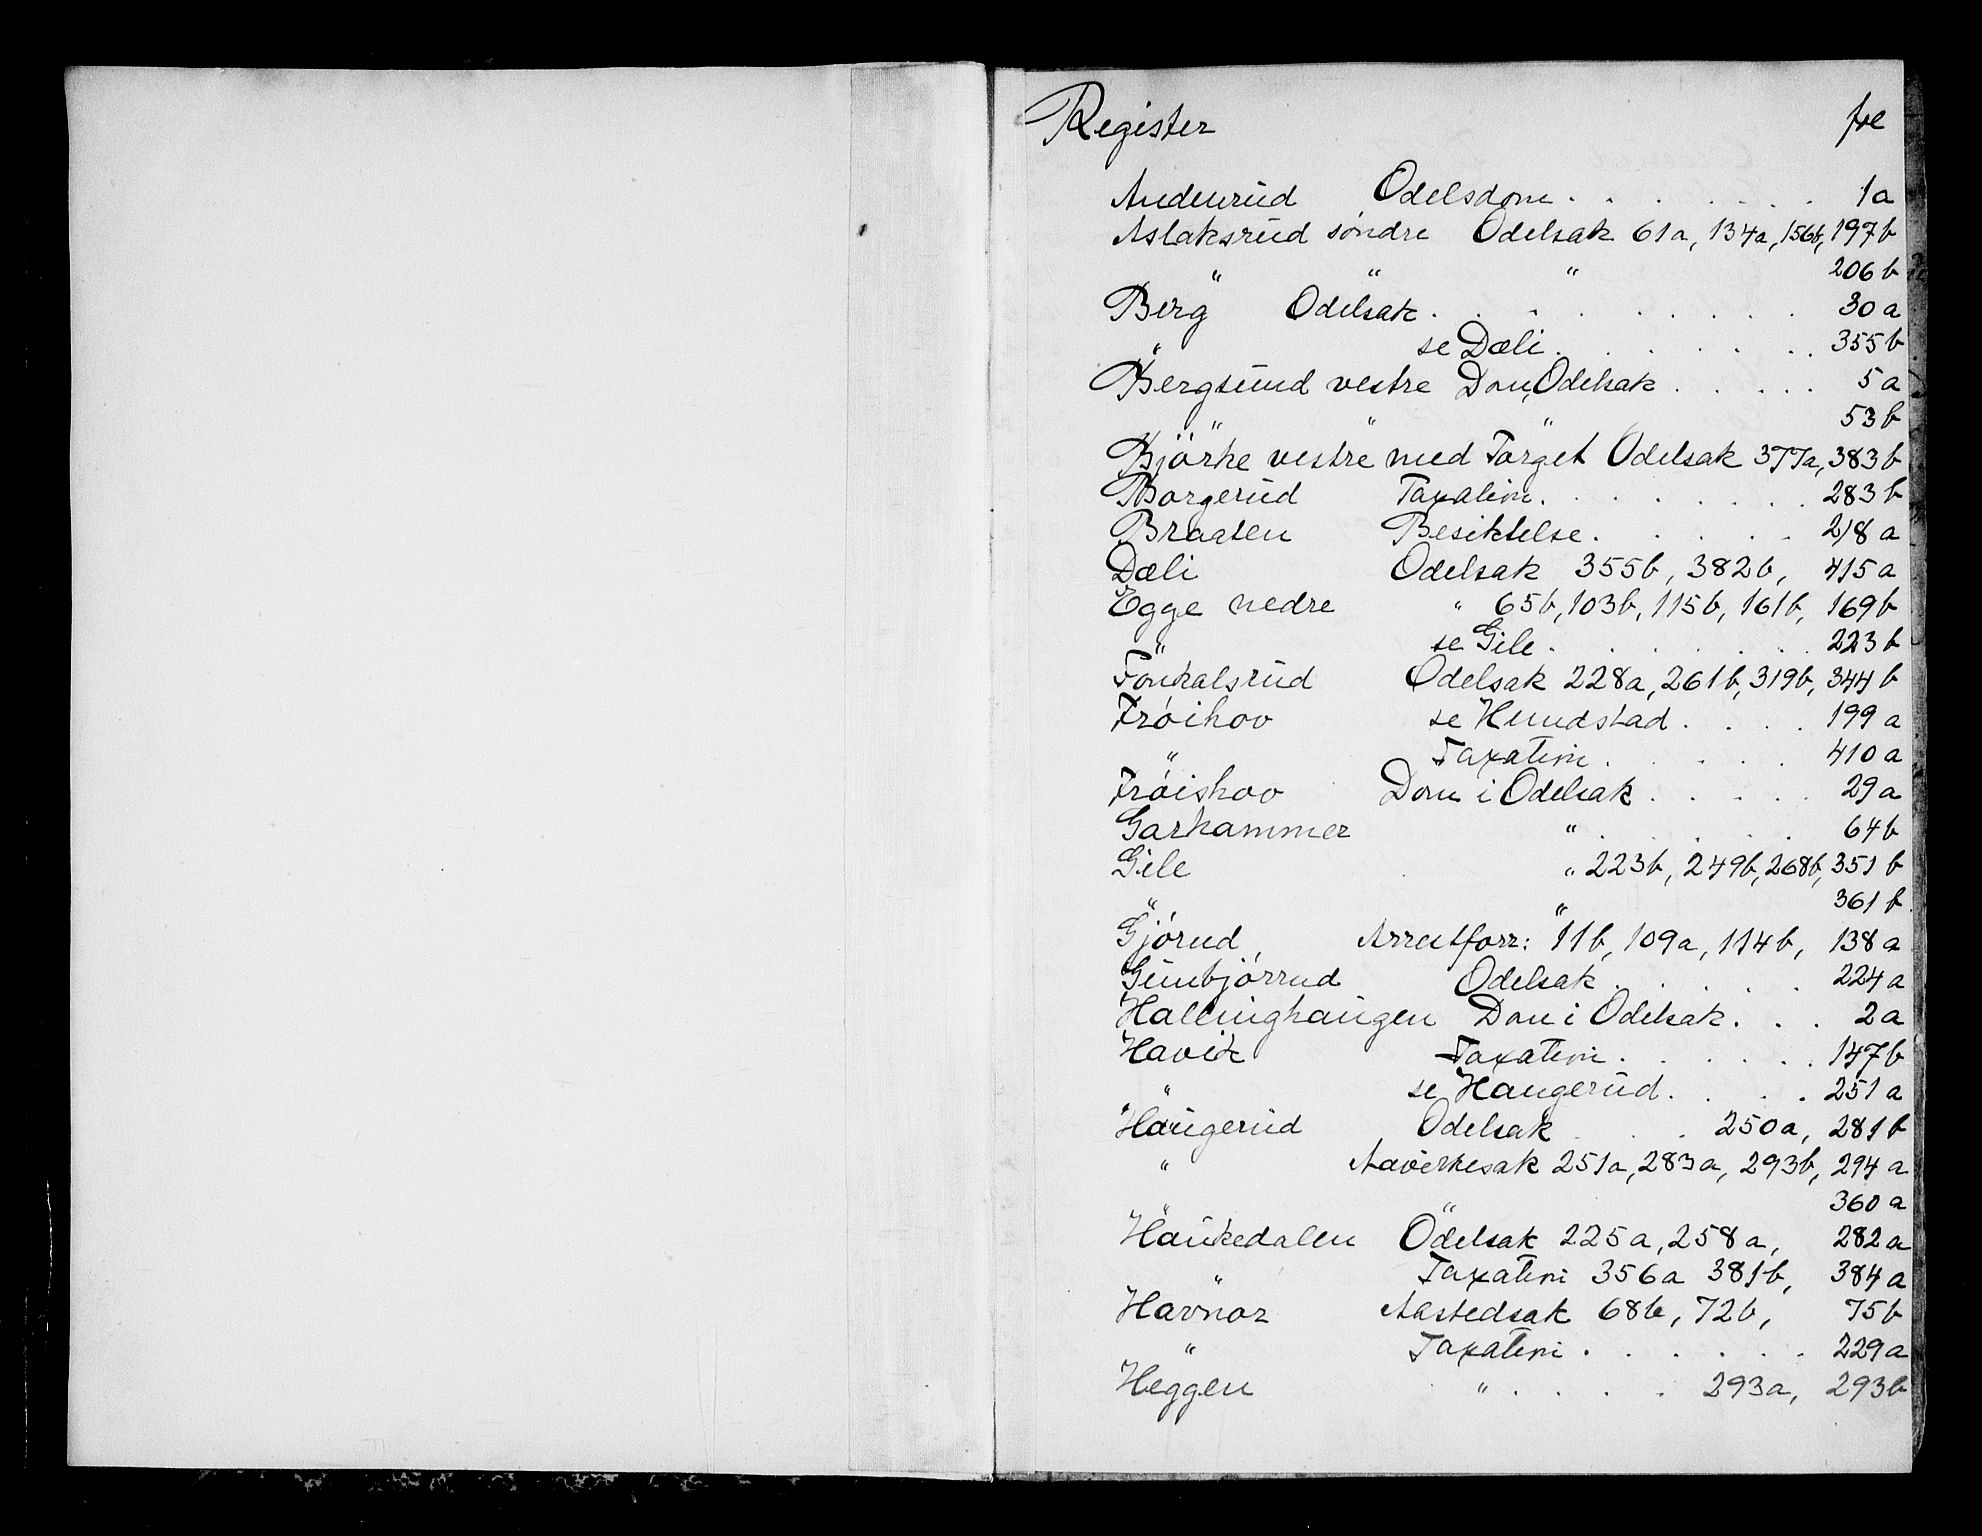 Register fol
Andenrud Odelsdom . . . . . . . 1a
Aslaksrud søndre Odelsak 61a, 134a, 156b, 197b
" " " 206b
Berg Odelsak . . . . . . . . . 30a
" se Dæli . . . . . . 355b
Bergsund vestre Dom, Odelsak . . . . . 5a
" " " 53b
Bjørke vestre med Torget Odelsak 377a, 383b
Borgerud Taxation . . . . . . . 283b
Braaten Besiktelse . . . . . 218a
Dæli Odelsak 355b, 382b, 415a
Egge nedre " 65b, 103b, 115b, 161b, 169b
" se Gile . . . . . . . 223b
Fonkalsrud Odelsak 228a, 261b, 319b, 344b
Frøihov se Hundstad . . . . 199a
" Taxation . . . . . 410a
Frøishov Dom i Odelsak . . . . . 29a
Garhammer " . . . . . 64b
Gile " 223b, 249b, 268b, 351b
" " 361b
Gjørud Arrestforr: 11b, 109a, 114b, 138a
Gunbjørrud Odelsak . . . . . 224a
Hallinghaugen Dom i Odelsak . . . 2a
Havik Taxation . . . . . 147b
" se Haugerud . . . . 251a
Haugerud Odelsak . . . 250a, 281b
" Aavirkesak 251a, 283a, 293b, 294a
" " 360a
Haukedalen Odelsak 225a, 258a, 282a
" Taxation 356a 381b, 384a
Havnor Aastedsak 68b, 72b, 75b
" Taxation . . . . . . 229a
Heggen " . . . . 293a, 293b